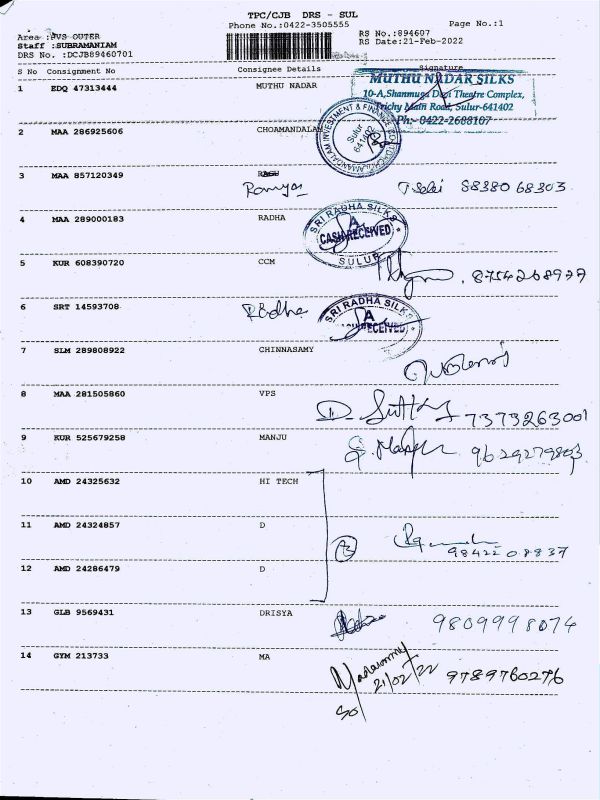 TPC/CJB DRS - SUL
Phone No.:0422-3505555
Page No.:1
Area :PVS OUTER
Staff :SUBRAMANIAM
DRS No. :DCJB89460701
RS No.:894607
RS Date:21-Feb-2022
S No Consignment No Consignee Details Signature
1 EDQ 47313444 MUTHU NADAR
MUTHU NADAR SILKS
10-A,Shanmuga Devi Theatre Complex,
Trichy Main Road, Sulur-641402
Ph:- 0422-2688107
2 MAA 286925606 CHOAMANDALAM
INVESTMENT & FINANCE
Sulur
641402
3 MAA 857120349
Ramya T Selvi 88380 68303
4 MAA 289000183 RADHA
SRI RADHA SILKS
A
CASH RECEIVED
SULUR
5 KUR 608390720 CCM
8754268977
6 SRT 14593708 Radha
SRI RADHA SILKS
A
CASH RECEIVED
7 SLM 289808922 CHINNASAMY
8 MAA 281505860 VPS
7373263001
9 KUR 525679258 MANJU
9629279803
10 AMD 24325632 HI TECH
11 AMD 24324857 D
98422 08837
12 AMD 24286479 D
13 GLB 9569431 DRISYA
9809998074
14 GYM 213733 MA
21/02/22
9789760276